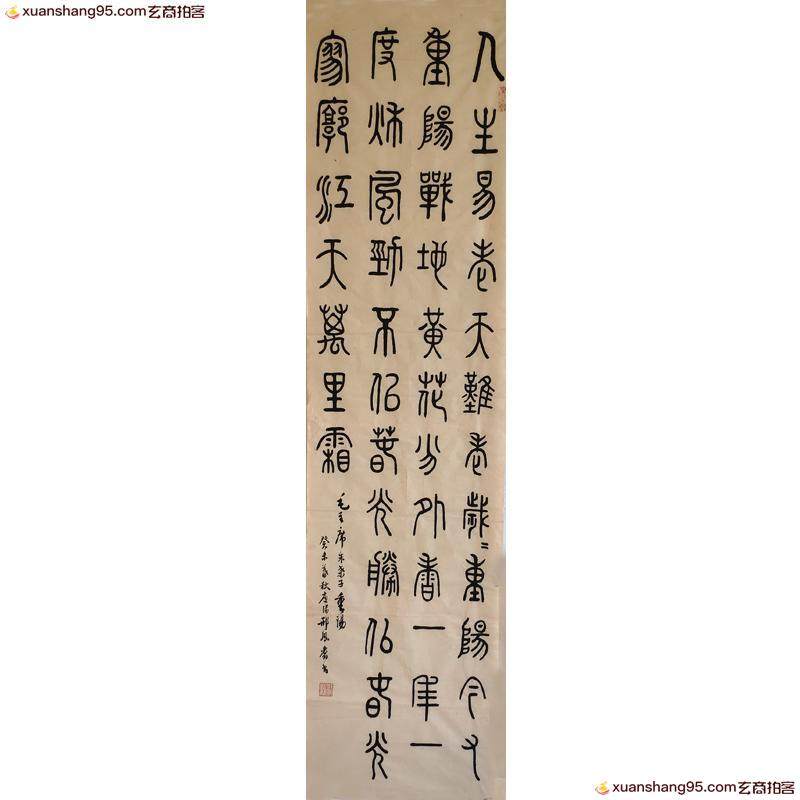 xuanshang95.com玄商拍客
xuanshang95.com玄商拍客
人生易老天難老歲〻重陽今又
重陽戰地黃花分外香一年一
度秋風勁不似春光勝似春光
寥廓江天萬里霜
毛主席采桑子重陽
癸未秋邢書
xuanshang95.com玄商拍客